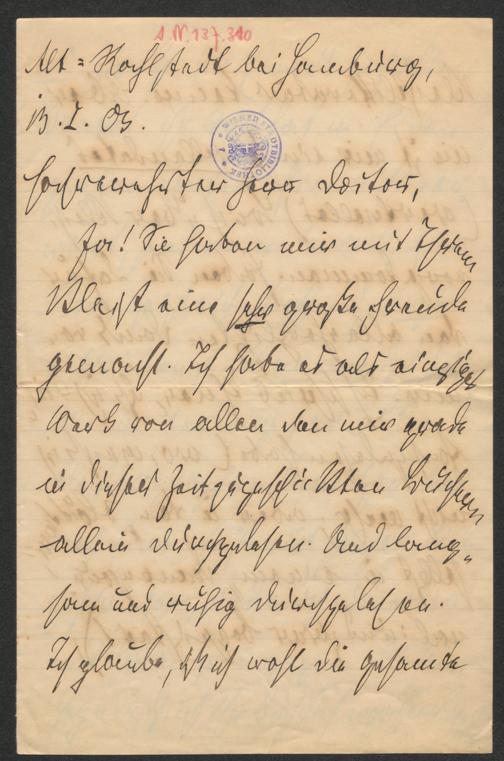 A.N. 137.310
Alt-Rahlstedt bei Hamburg,
13. I. 03.
WIENER STADTBIBLIOTHEK
Hochverehrter Herr Doctor,
Ja! Sie haben mir mit Ihrem
Kleist eine sehr große Freude
gemacht. Ich habe es als einziges
Werk von allen den mir grade
in dieser Zeit zugeschickten Büchern
allein durchgelesen. Und lang-
sam und ruhig durchgelesen.
Ich glaube, daß ich wohl die gesamte